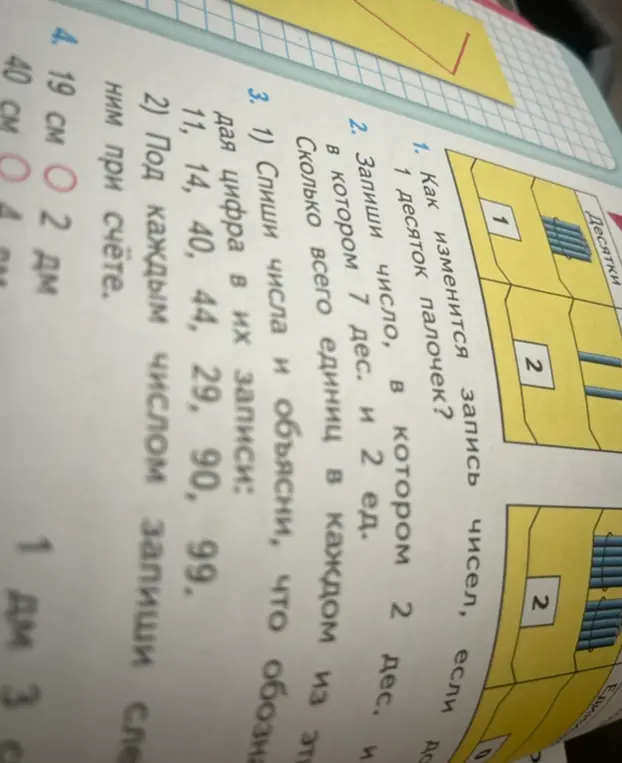 Десятки
1
2
2
0
1. Как изменится запись чисел, если
1 десяток палочек?
2. Запиши число, в котором 2 дес. и
в котором 7 дес. и 2 ед.
Сколько всего единиц в каждом из
3. 1) Спиши числа и объясни, что
дая цифра в их записи:
11, 14, 40, 44, 29, 90, 99.
2) Под каждым числом запиши
ним при счёте.
4. 19 см 2 дм
1 дм 3
40 см 4